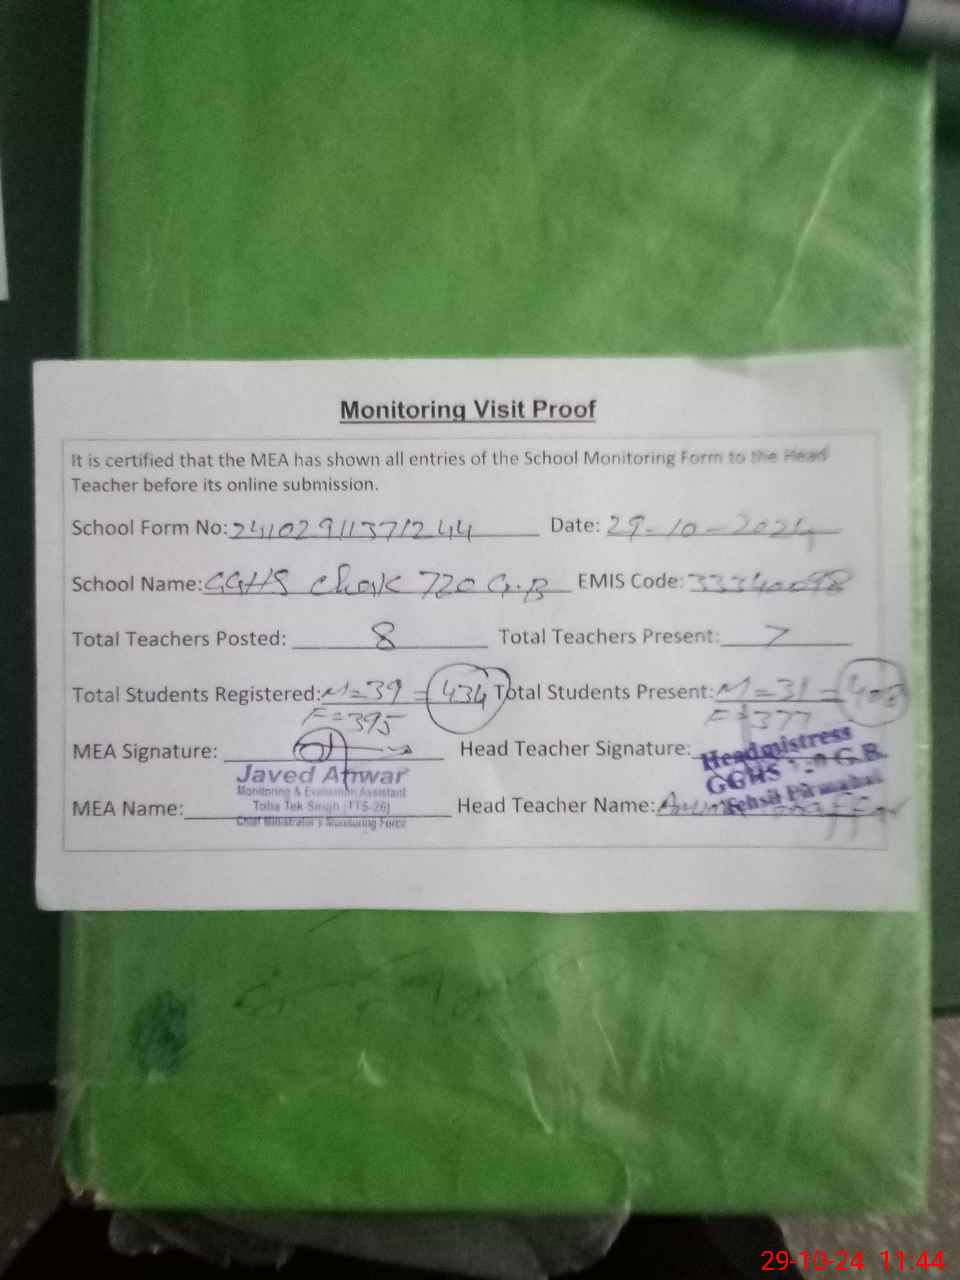 Monitoring Visit Proof
It is certified that the MEA has shown all entries of the School Monitoring Form to the Head
Teacher before its online submission.
School Form No: 24102911371244 Date: 29-10-2024
School Name: GGHS Chak 720 G.B EMIS Code: 33340098
Total Teachers Posted: 8 Total Teachers Present: 7
Total Students Registered: M=39 = 434 Total Students Present: M=31 = 408
F=395 F=377
MEA Signature: Head Teacher Signature:
Headmistress
GGHS G.B.
Tehsil Pirmahal
Javed Anwar
Monitoring & Evaluation Assistant
Toba Tek Singh (TTS-26)
Chief Minister's Monitoring Force
MEA Name: Head Teacher Name:
29-10-24 11:44